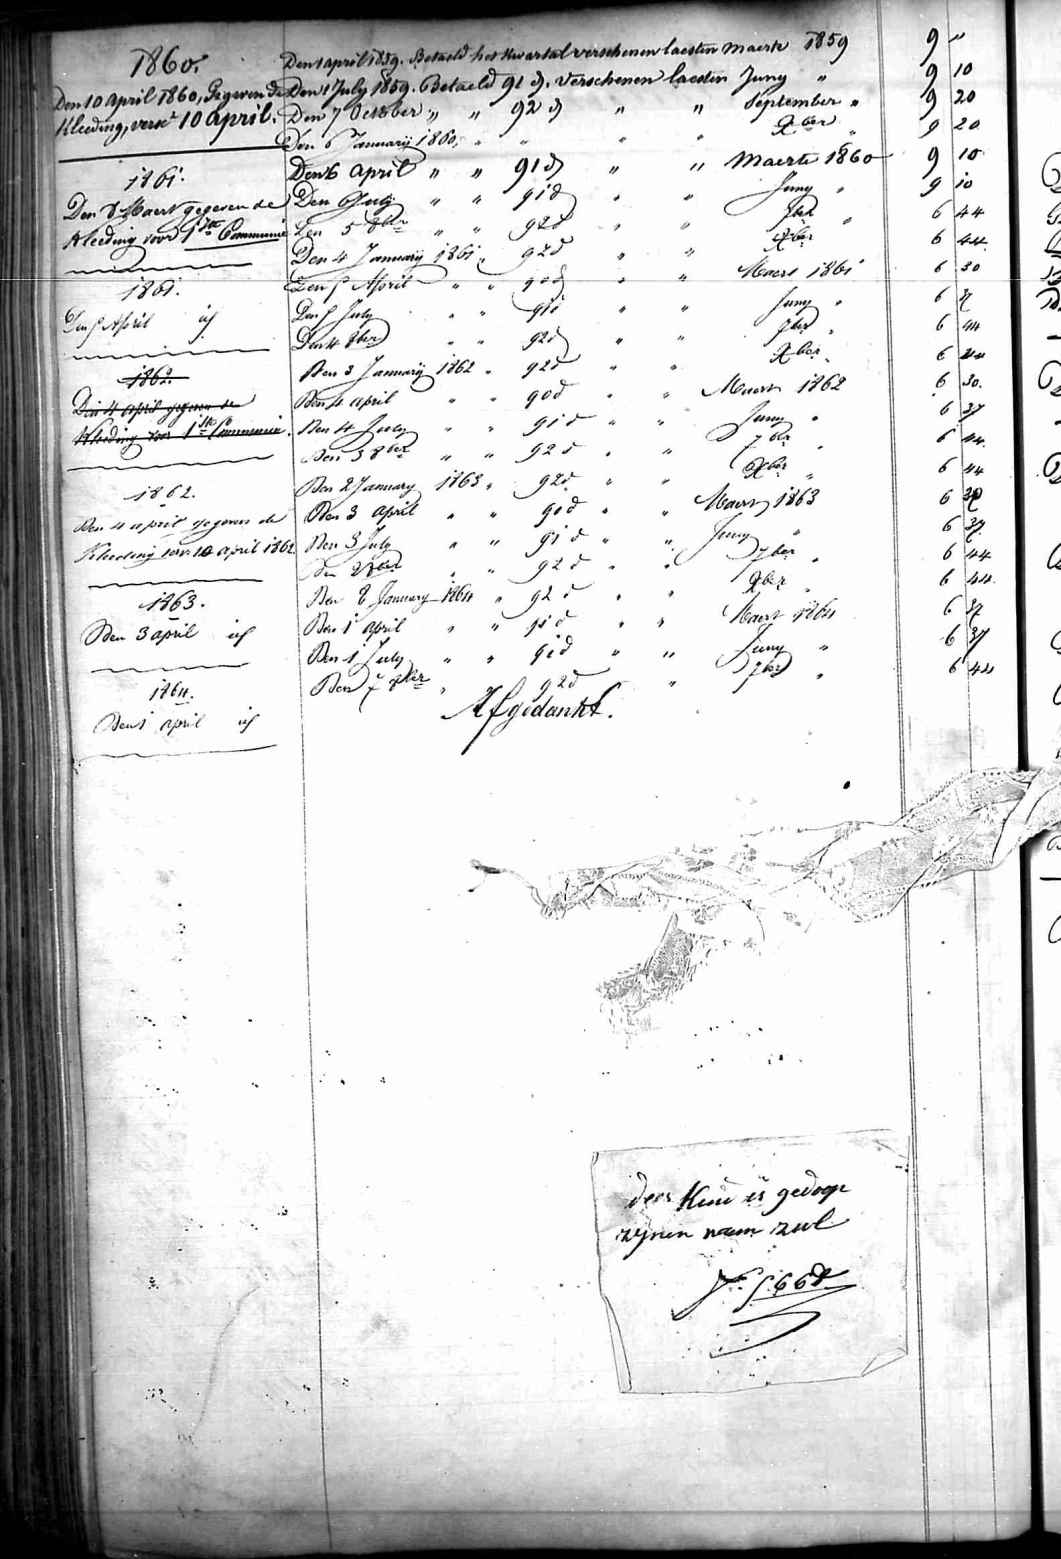 1860.
Den 10 April 1860, Gegeven de
Kleeding, versn 10 April.
1861.
Den 8 Maert gegeven de
Kleeding voor 1ste Communie
1861.
Den 5 April id
1862.
Den 4 april gegeven de
Kleeding voor 1ste Communie.
1862.
Den 4 april gegeven de
Kleeding 10 april 1862
1863.
Den 3 april id
1864.
Den 1 april id
Den 1 april 1859. Betaeld het Kwartal verschenen laesten Maerte 1859 9 "
Den 1 July 1859. Betaeld 91 d. verschenen laesten Juny " 9 10
Den 7 October " " 92 d " " September " 9 20
Den 6 January 1860, " " " " Xber " 9 20
Den 6 April " " 91 d " " Maerte 1860 9 10
Den 6 July " " 91 d " " Juny " 9 10
Den 5 8ber " " 92 d " " 7ber " 6 44
Den 4 January 1861 " 92 d " " Xber 6 44
Den 5 April " " 90 d " " Maert 1861 6 30
Den 5 July " " 91 d " " Juny " 6 37
Den 4 8ber " " 92 d " " 7ber " 6 44
Den 3 January 1862 " 92 d " " Xber " 6 44
Den 4 april " " 90 d " " Maert 1862 6 30.
Den 4 July " " 91 d " " Juny " 6 37
Den 3 8ber " " 92 d " " 7ber " 6 44.
Den 2 January 1863 " 92 d " " Xber " 6 44
Den 3 april " " 90 d " " Maert 1863 6 30
Den 3 July " " 91 d " " Juny " 6 37.
Den 2 8ber " " 92 d " " 7ber " 6 44
Den 8 January 1864 " 92 d " " Xber " 6 44.
Den 1 april " " 91 d " " Maert 1864 6 37
Den 1 July " " 91 d " " Juny " 6 37
Den 7 8ber " 92 d " 7ber " 6 44
Afgedankt.
dees Kint is gedoop
zynen naem zul